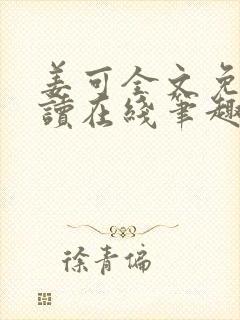 姜可全文免
讀在綫筆趣
徐青偏